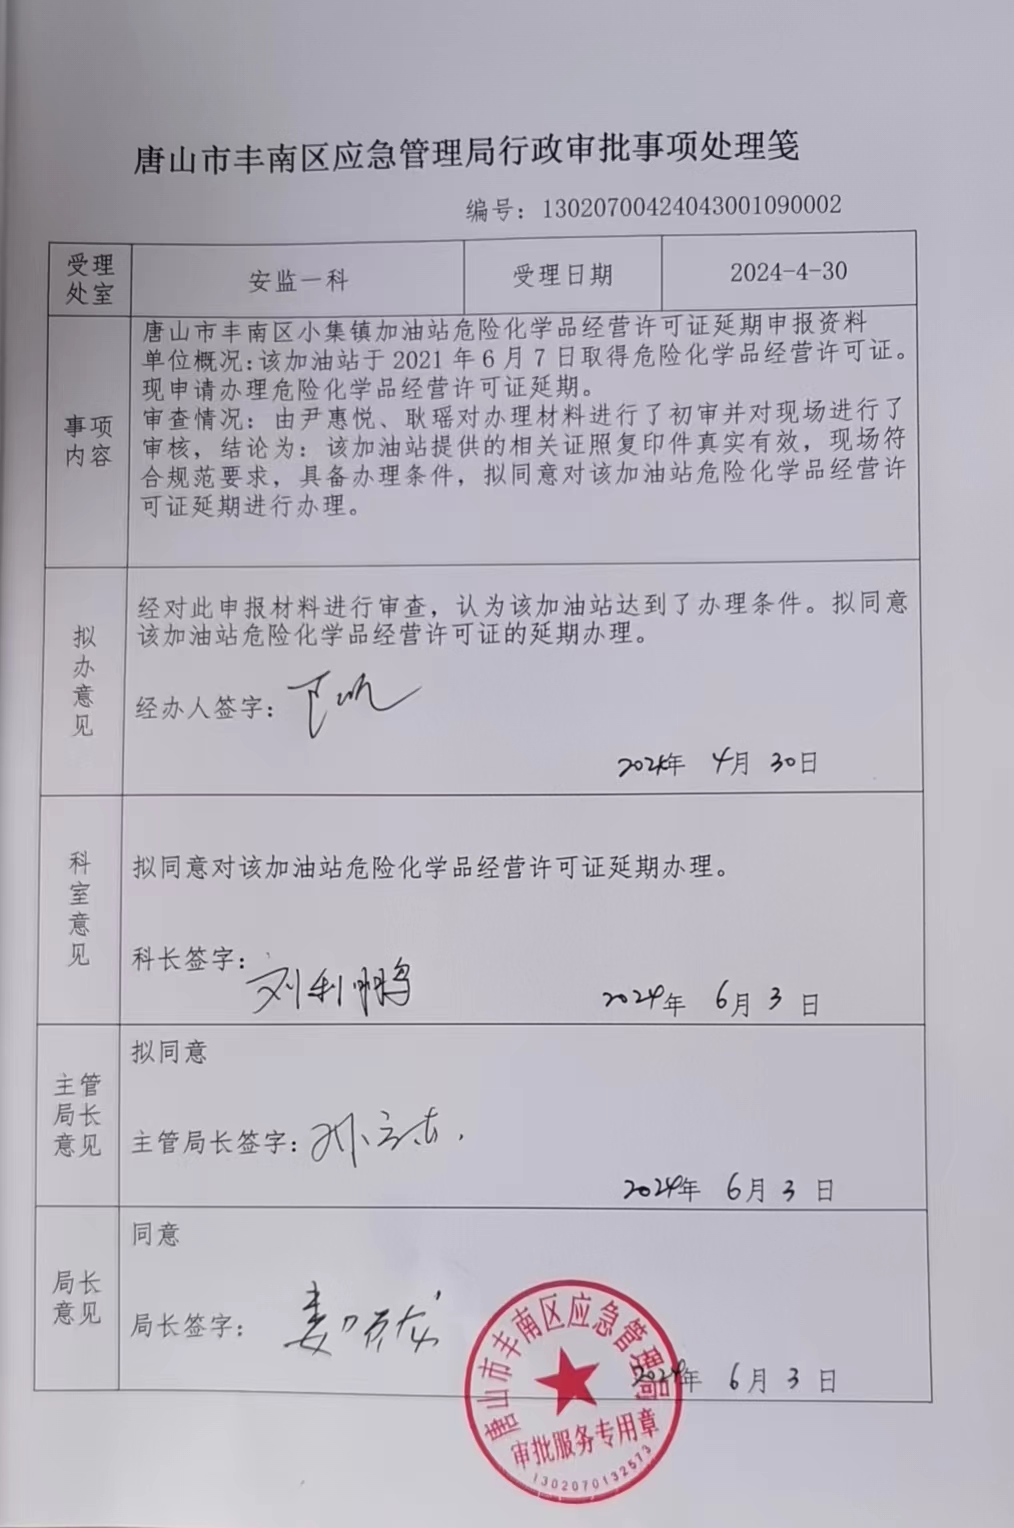 唐山市丰南区应急管理局行政审批事项处理笺
编号：13020700424043001090002
受理
处室
安监一科
受理日期
2024-4-30
事项
内容
唐山市丰南区小集镇加油站危险化学品经营许可证延期申报资料
单位概况：该加油站于 2021 年 6 月 7 日取得危险化学品经营许可证。
现申请办理危险化学品经营许可证延期。
审查情况：由尹惠悦、耿瑶对办理材料进行了初审并对现场进行了
审核，结论为：该加油站提供的相关证照复印件真实有效，现场符
合规范要求，具备办理条件，拟同意对该加油站危险化学品经营许
可证延期进行办理。
拟
办
意
见
经对此申报材料进行审查，认为该加油站达到了办理条件。拟同意
该加油站危险化学品经营许可证的延期办理。
经办人签字：
2024年 4月 30日
科
室
意
见
拟同意对该加油站危险化学品经营许可证延期办理。
科长签字：
刘利鹏
2024年 6月 3 日
主管
局长
意见
拟同意
主管局长签字：
2024年 6月 3 日
局长
意见
同意
局长签字：
2024年 6月 3 日
唐山市丰南区应急管理局
审批服务专用章
1302070132573